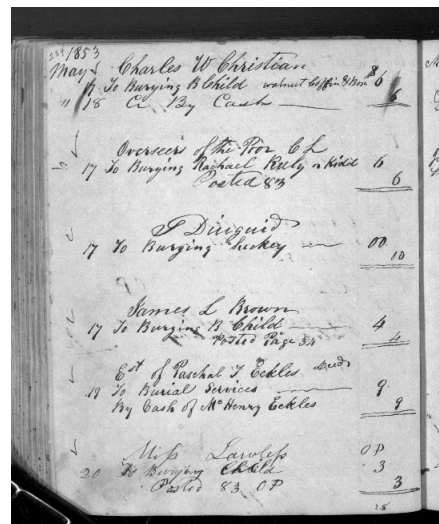 1853
May Charles W Christian
17 To Burying B Child walnut Coffin & Box $6
" 18 Cr By Cash 6
Overseers of the Poor C L
17 To Burying Rachael Kidd 6
Posted 83 6
Diuguid
17 To Burying 00
10
James L Brown
17 To Burying B Child 4
Posted Page 34 4
Est of Paschal T Eckles Decd
19 To Burial Services 9
By Cash of McHenry Eckles 9
Miss Lawless OP
20 To Burying Child 3
Posted 83 OP 3
28